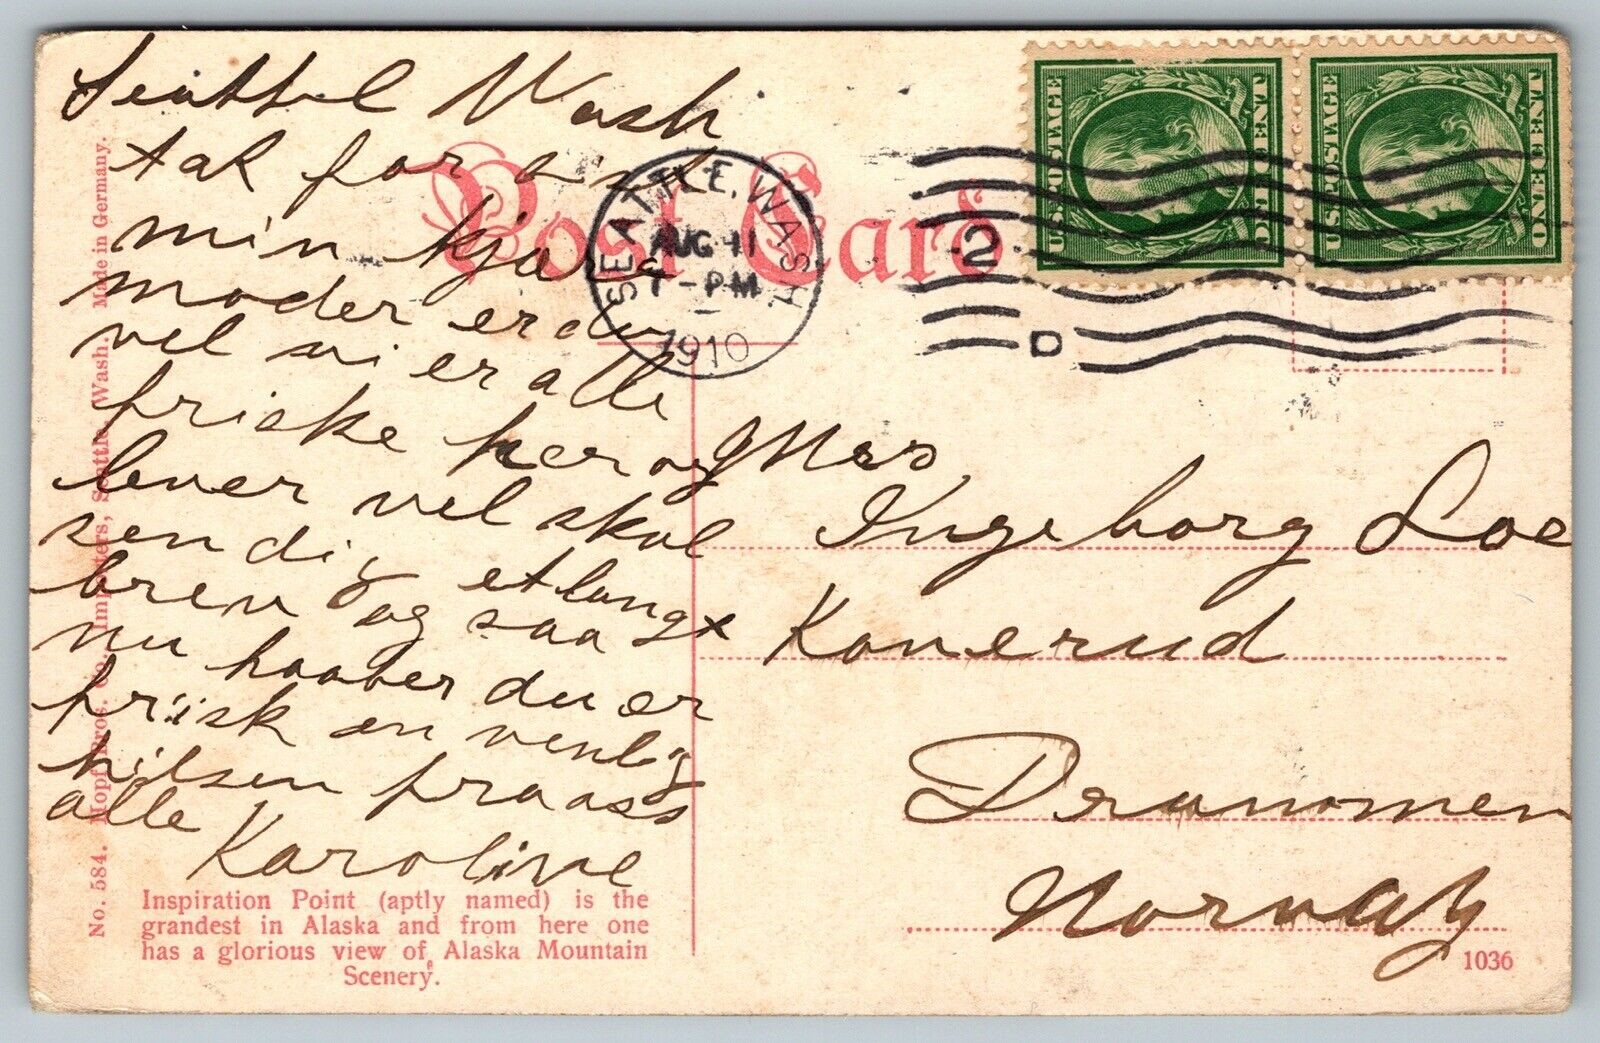 Seattel Wash
tak for 
min kjære
moder er du
vel vi er alle
friske her og
lever vel skal
sen dig et langt
brev og saa
nu haaber du er
friisk en venlig
hilsen fra oss
alle
Karoline
Post Card
SEATTLE, WASH.
AUG 11
7-PM
1910
2
D
U.S. POSTAGE
ONE CENT
U.S. POSTAGE
ONE CENT
Mrs
Ingeborg Loe
Konerud
Drammen
Norway
No. 584. Mopf Bros. Co. Importers, Seattle, Wash. Made in Germany.
Inspiration Point (aptly named) is the
grandest in Alaska and from here one
has a glorious view of Alaska Mountain
Scenery.
1036